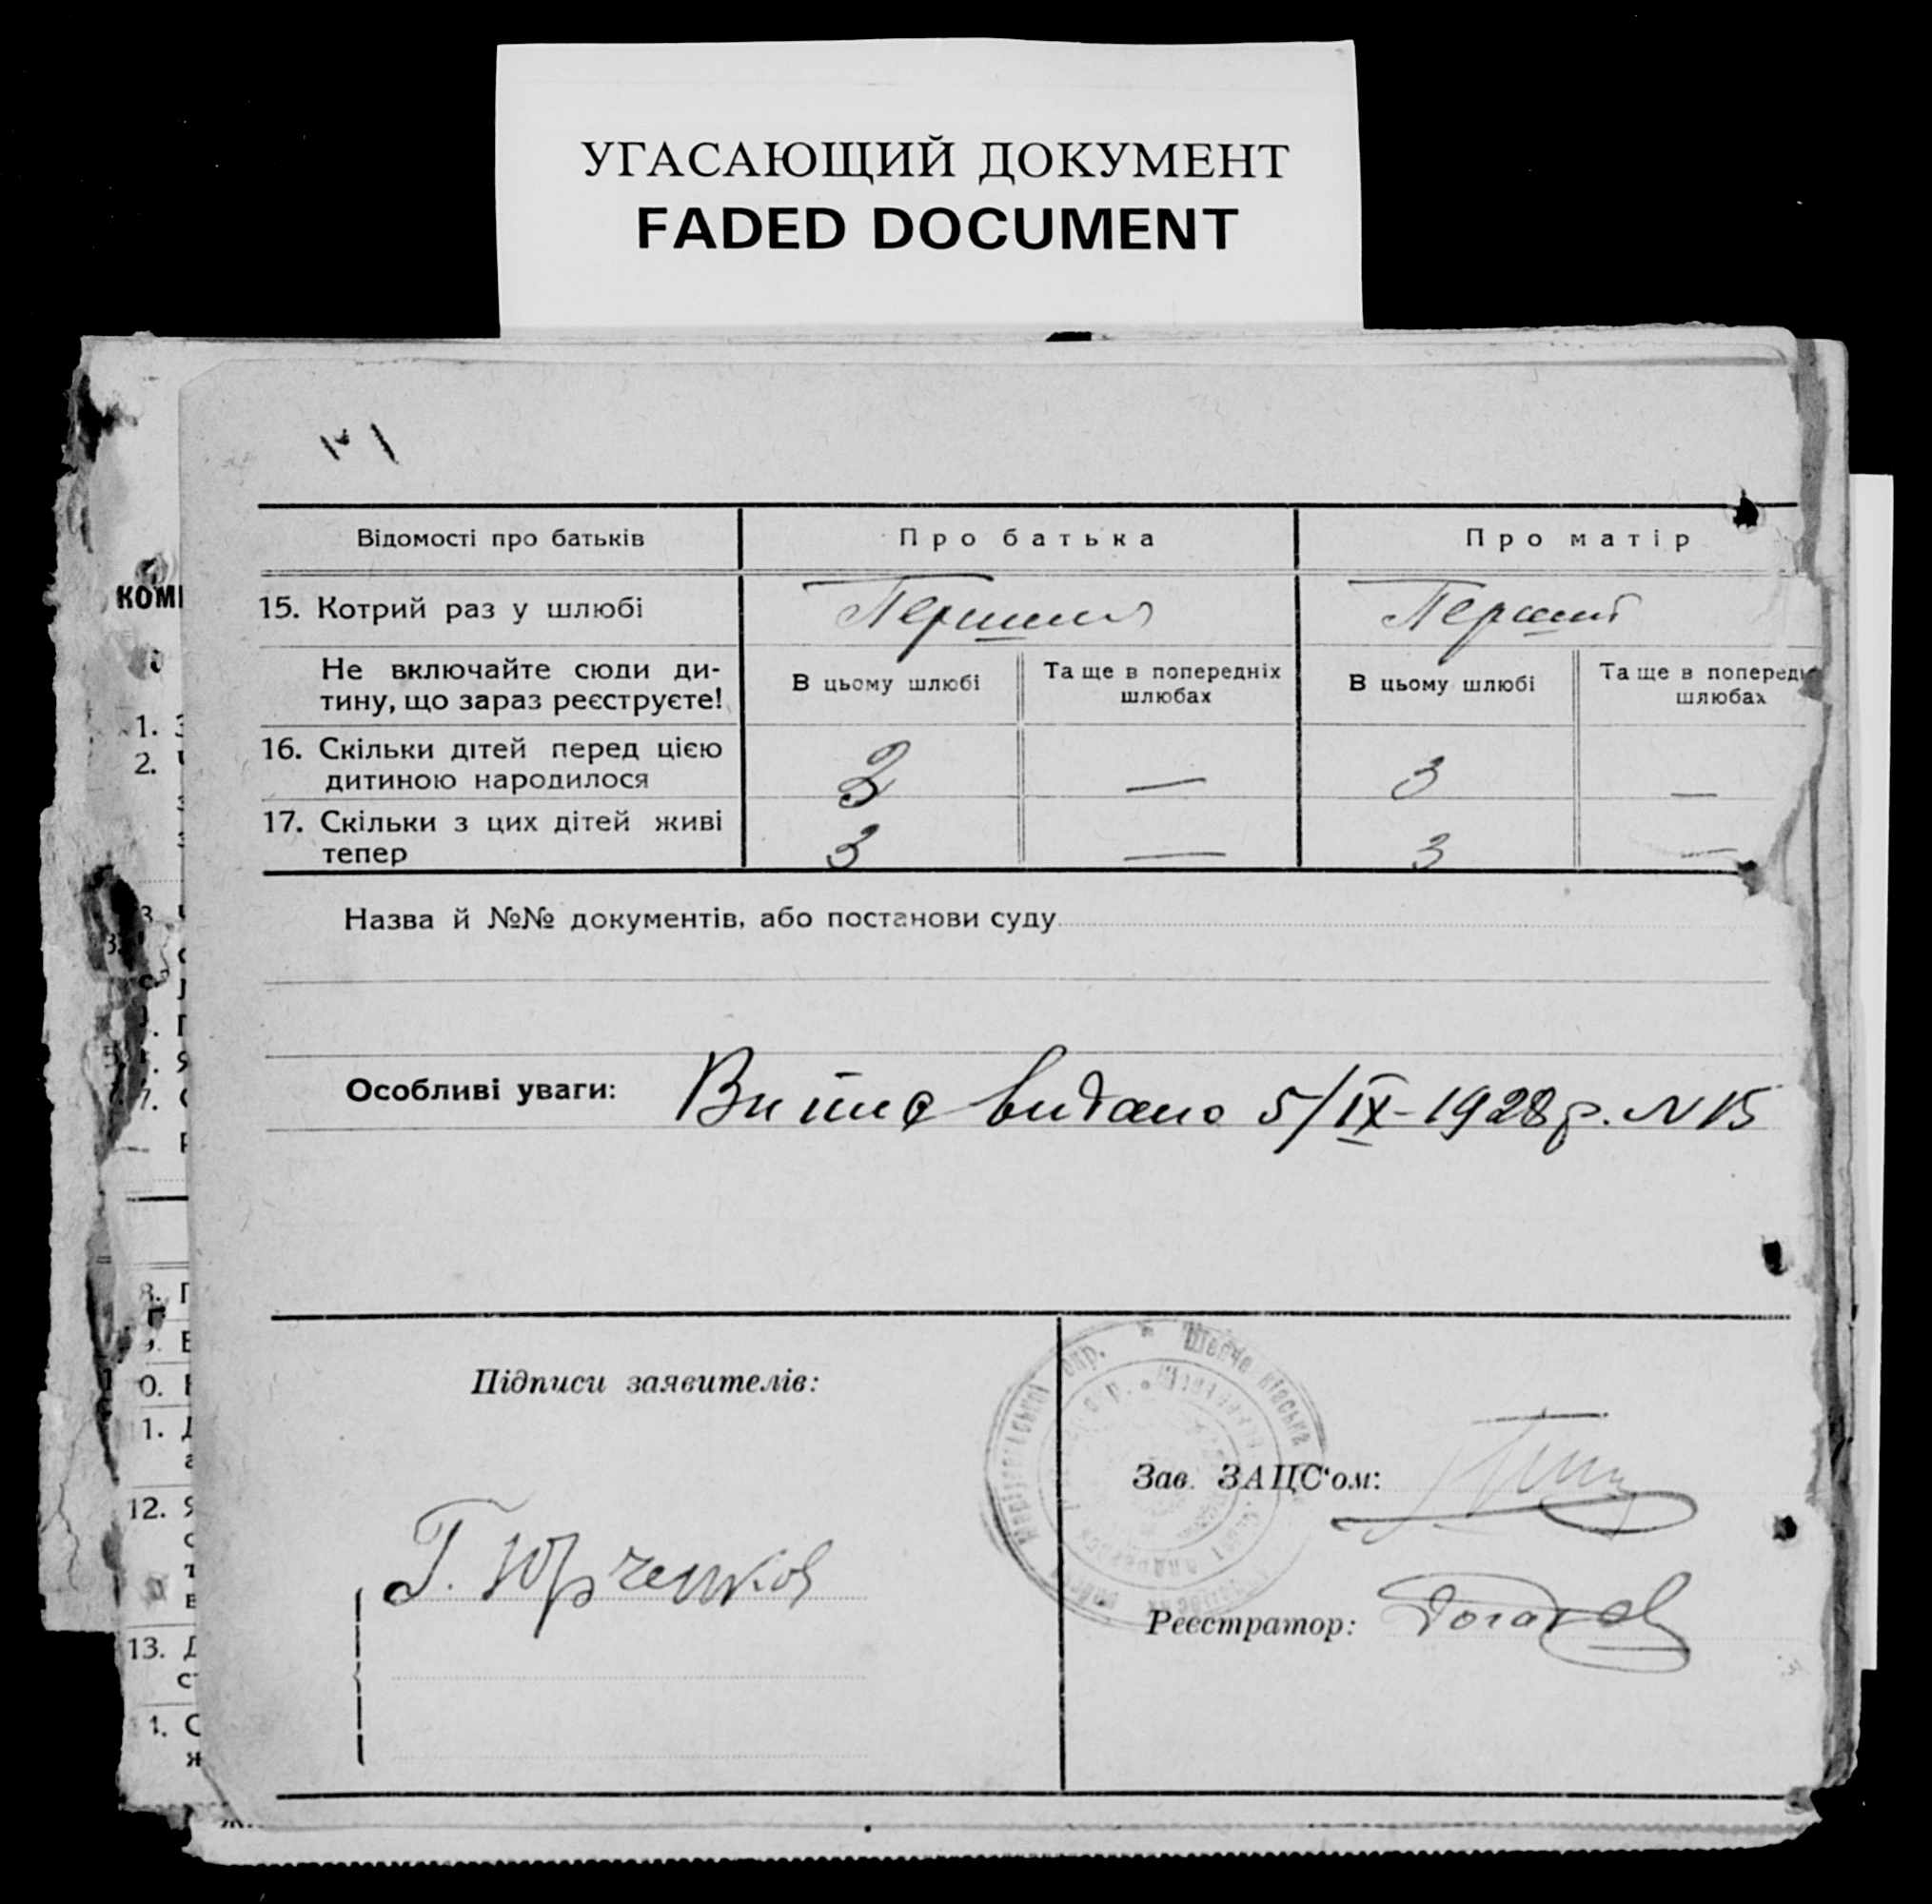 УГАСАЮЩИЙ ДОКУМЕНТ
FADED DOCUMENT
Відомості про батьків
Про батька
Про матір
15. Котрий раз у шлюбі
Перший
Перший
Не включайте сюди ди-
тину, що зараз реєструєте!
В цьому шлюбі
Та ще в попередніх
шлюбах
В цьому шлюбі
Та ще в поперед
шлюбах
16. Скільки дітей перед цією
дитиною народилося
3
—
3
—
17. Скільки з цих дітей живі
тепер
3
—
3
—
Назва й №№ документів, або постанови суду
Особливі уваги:
видано 5/IX-1928 р. N 15
Підписи заявителів:
Г. Юрченков
Зав. ЗАЦС'ом:
Реєстратор:
КОМ
1.
2.
7.
12.
13.